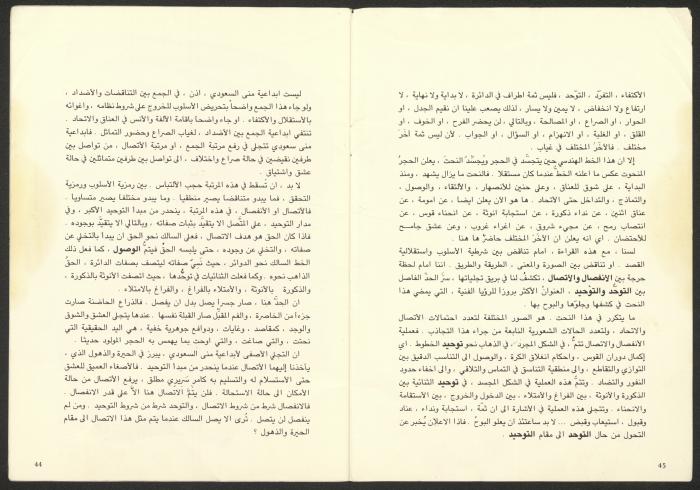 ليست ابداعية منى السعودي ، اذن ، في الجمع بين التناقضات والأضداد ،
ولو جاء هذا الجمع واضحاً بتحريض الأسلوب للخروج على شروط نظامه ، واغوائه
بالاستقلال والاكتفاء . او جاء واضحا باقامة الألفة والأنس في العناق والاتحاد .
تنتفي ابداعية الجمع بين الأضداد ، لغياب الصراع وحضور التماثل . فابداعية
منى سعودي تتجلى في رفع مرتبة الجمع ، او مرتبة الأتصال ، من تواصل بين
طرفين نقيضين في حالة صراع واختلاف ، الى تواصل بين طرفين متماثلين في حالة
عشق واشتياق .
لا بد ، ان تسقط في هذه المرتبة حجب الألتباس . بين رمزية الأسلوب ورمزية
التحقق ، فما يبدو متناقضا يصبر منطقيا . وما يبدو مختلفا يصبر متساويا .
فالأتصال او الأنفصال ، في هذه المرتبة ، ينحدر من مبدا التوحيد الأكبر ، وفي
مدار التوحيد . على المتصل الا يتقيد بثبات صفاته ، وبالتالي الا يتقيد بوجوده .
فاذا كان الحق هو هدف الاتصال ، فعلى السالك نحو الحق ان يبدا بالتخلي عن
صفاته ، والتخلي عن وجوده ، حتى يلبسه الحق فيتم الوصول ، كما فعل ذلك
الخط السالك نحو الدوائر ، حيث نسي صفاته ليتصف بصفات الدائرة ، الحق
الذاهب نحوه . وكما فعلت الثنائيات في توحدها ، حيث اتصفت الأنوثة بالذكورة ،
والذكورة بالأنوثة ، والأمتلاء بالفراغ ، والفراغ بالأمتلاء .
ان الحد هنا ، صار جسرا يصل بدل ان يفصل . فالذراع الحاضنة صارت
جزءا من الخاصرة ، والفم المقبل صار القبلة نفسها . عندها يتجلى العشق والشوق
والوجد ، كمقاصد ، وغايات ، ودوافع جوهرية خفية ، هي اليد الحقيقية التي
نحتت ، والتي صاغت ، والتي اوحت بما يهمس به الحجر المولود حديثا .
ان التجلي الأصفى لأبداعية منى السعودي ، يبرز في الحيرة والذهول الذي ،
يأخذنا إليهما الأتصال عندما ينحدر من مبدا التوحيد . فالأصغاء العميق للعشق
حتى الاستسلام له والتسليم به كامر سريري مطلق ، يرفع الأتصال من حالة
الأمكان الى حالة الاستحالة . فلن يتم الاتصال هنا الا على قدر الانفصال .
فالانفصال شرط من شروط الاتصال ، والتوحد شرط من شروط التوحيد . ومن لم
ينفصل لن يتصل . ترى الا يصل السالك عندما يتم مثل هذا الاتصال الى مقام
الحيرة والذهول ؟
44
الأكتفاء ، التفرد ، التوحد . فليس ثمة اطراف في الدائرة ، لا بداية ولا نهاية ، لا
ارتفاع ولا انخفاض ، لا يمين ولا يسار ، لذلك يصعب علينا ان نقيم الجدل ، او
الحوار ، او الصراع ، او المصالحة ، وبالتالي ، لن يحضر الفرح ، او الخوف ، او
القلق ، او الغلبة ، او الانهزام ، او السؤال ، او الجواب . لأن ليس ثمة آخر
مختلف . فالآخر المختلف في غياب .
إلا ان هذا الخط الهندسي حين يتجسد في الحجر ويجسد النحت ، يعلن الحجر
المنحوت عكس ما اعلنه الخط عندما كان مستقلا . فالنحت ما يزال يشهد ، ومنذ
البداية ، على شوق للعناق ، وعلى حنين للأنصهار ، والألتقاء ، والوصول ،
والتماذج ، والتداخل حتى الاتحاد . ها هو الآن يعلن ايضا ، عن امومة ، عن
عناق اثنين ، عن نداء ذكورة ، عن استجابة انوثة ، عن انحناء قوس ، عن
انتصاب رمح ، عن مجيء شروق ، عن اغراء غروب ، وعن عشق جامح
للأحتضان . اي انه يعلن ان الآخر المختلف حاضر ها هنا .
لسنا ، مع هذه القراءة ، امام تناقض بين شرطية الأسلوب واستقلالية
القصد . او تناقض بين الصورة والمعنى ، الطريقة والطريق . اننا امام لحظة
حرجة بين الإنفصال والإتصال ، تكشف لنا في بريق تجلياتها ، سر الحد الفاصل
بين التوحد والتوحيد ، العنوان الأكثر بروزا للرؤيا الفنية ، التي يمضي هذا
النحت في كشفها وجلوها والبوح بها .
ما يتكرر في هذا النحت . هو الصور المختلفة لتعدد احتمالات الأتصال
والاتحاد ، ولتعدد الحالات الشعورية النابعة من جراء هذا التجاذب . فعملية
الأنفصال والاتصال تتم ، في الشكل المجرد ، في الذهاب نحو توحيد الخطوط . اي
إكمال دوران القوس ، واحكام انغلاق الكرة ، والوصول الى التناسب الدقيق بين
التوازي والتقاطع ، والى منطقية التناسق في التماس والتلاقي ، والى اخفاء حدود
النفور والتضاد . وتتم هذه العملية في الشكل المجسد ، في توحيد الثنائية بين
الذكورة والأنوثة ، بين الفراغ والأمتلاء . بين الدخول والخروج ، بين الأستقامة
والانحناء . وتتجلى هذه العملية في الأشارة الى ان ثمة ، استجابة ونداء ، عناد
وقبول ، استيعاب وقبض ... لا بد ساعتئذ ان يعلو البوح . فاذا الاعلان يخبر عن
التحول من حال التوحد الى مقام التوحيد .
45